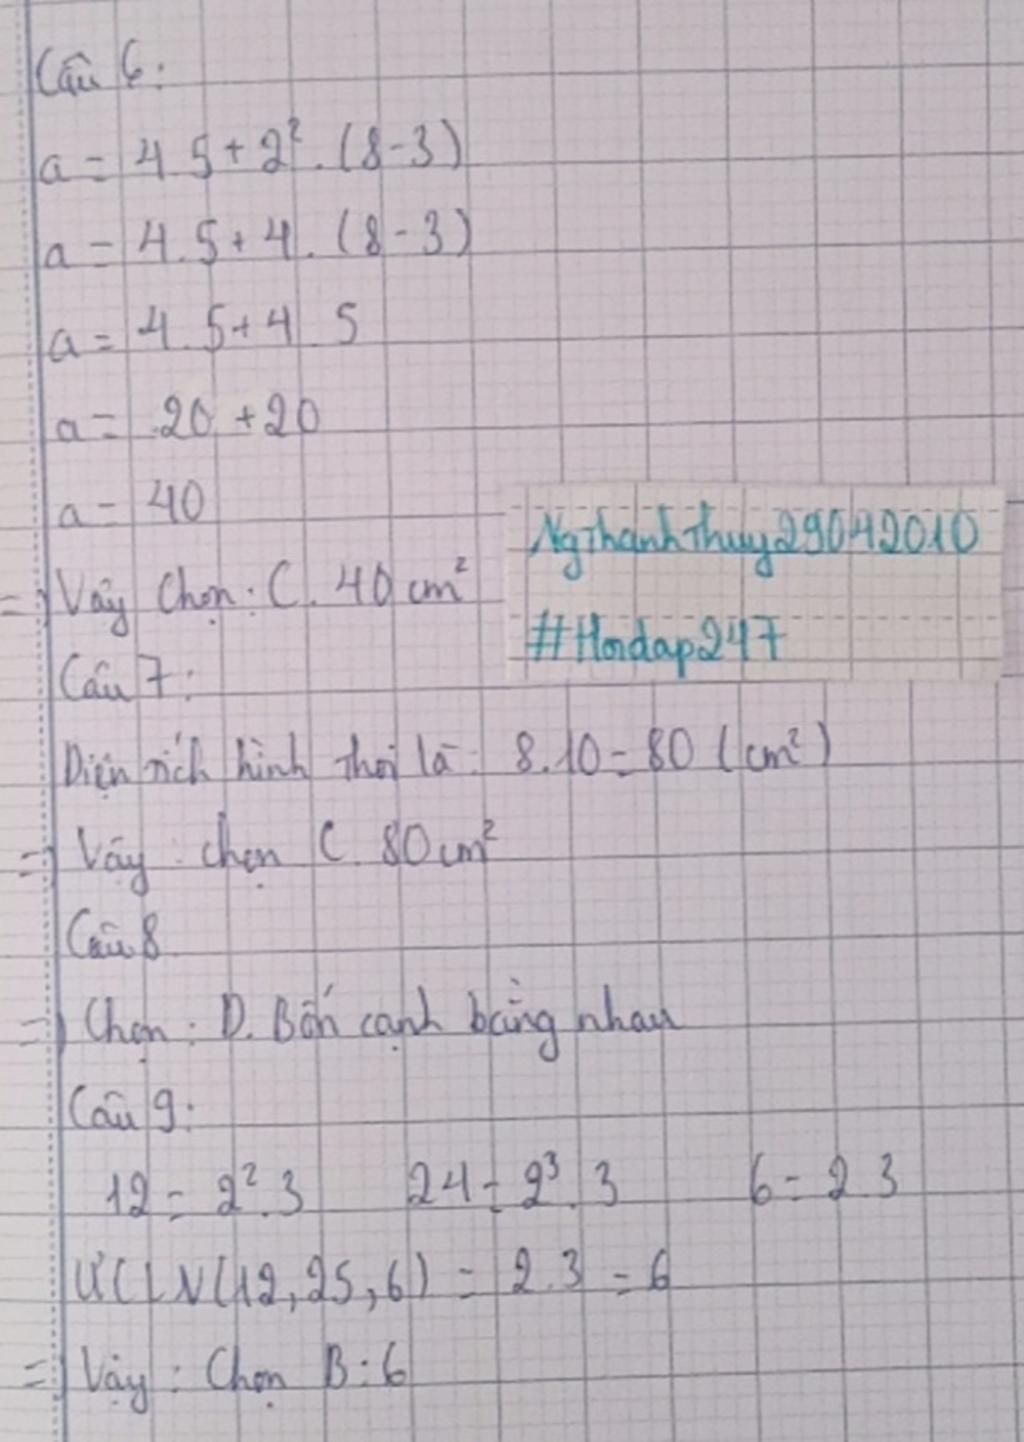 Câu 6:
a = 4.5 + 2². (8-3)
a = 4.5 + 4. (8-3)
a = 4.5 + 4 5
a = 20 + 20
a = 40
NgThanhThuy29042010
=) Vậy Chọn: C. 40 cm²
#Hoidap247
Câu 7:
Diện tích hình thoi là: 8.10 = 80 (cm²)
=) Vậy: chọn C. 80 cm²
Câu 8
=) Chọn: D. Bốn cạnh bằng nhau
Câu 9:
12 = 2².3 24 = 2³.3 6 = 2.3
ƯCLN(12,25,6) = 2.3 = 6
=) Vậy: Chọn B:6